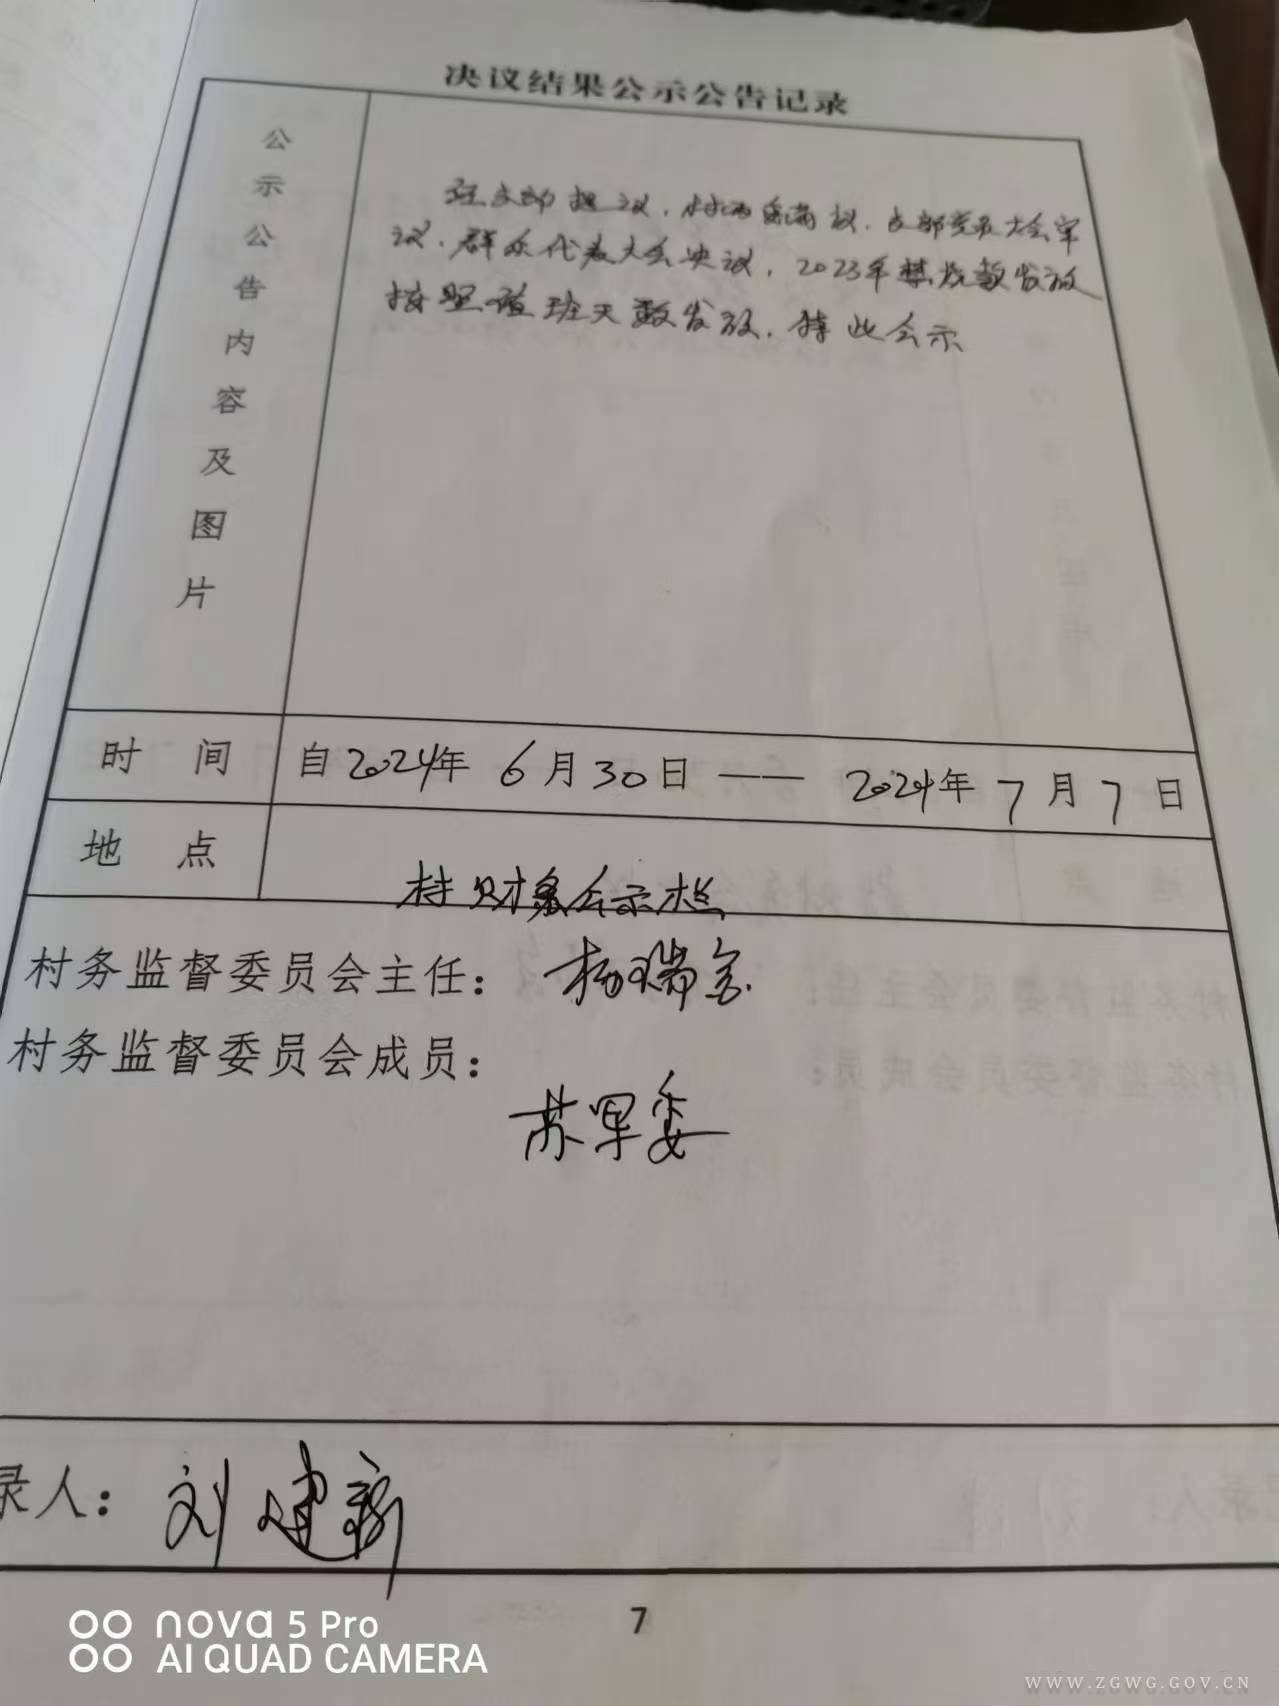 决议结果公示公告记录
公示公告内容及图片
经支部提议,村两委商议,支部党员大会审
议,群众代表大会决议,2023年禁烧款发放
按照值班天数发放,特此公示
时间 自2024年6月30日——2024年7月7日
地点 村财务公示栏
村务监督委员会主任:杨瑞
村务监督委员会成员:
苏军委
录人:刘建新
7
nova 5 Pro
AI QUAD CAMERA
WWW.ZGWG.GOV.CN